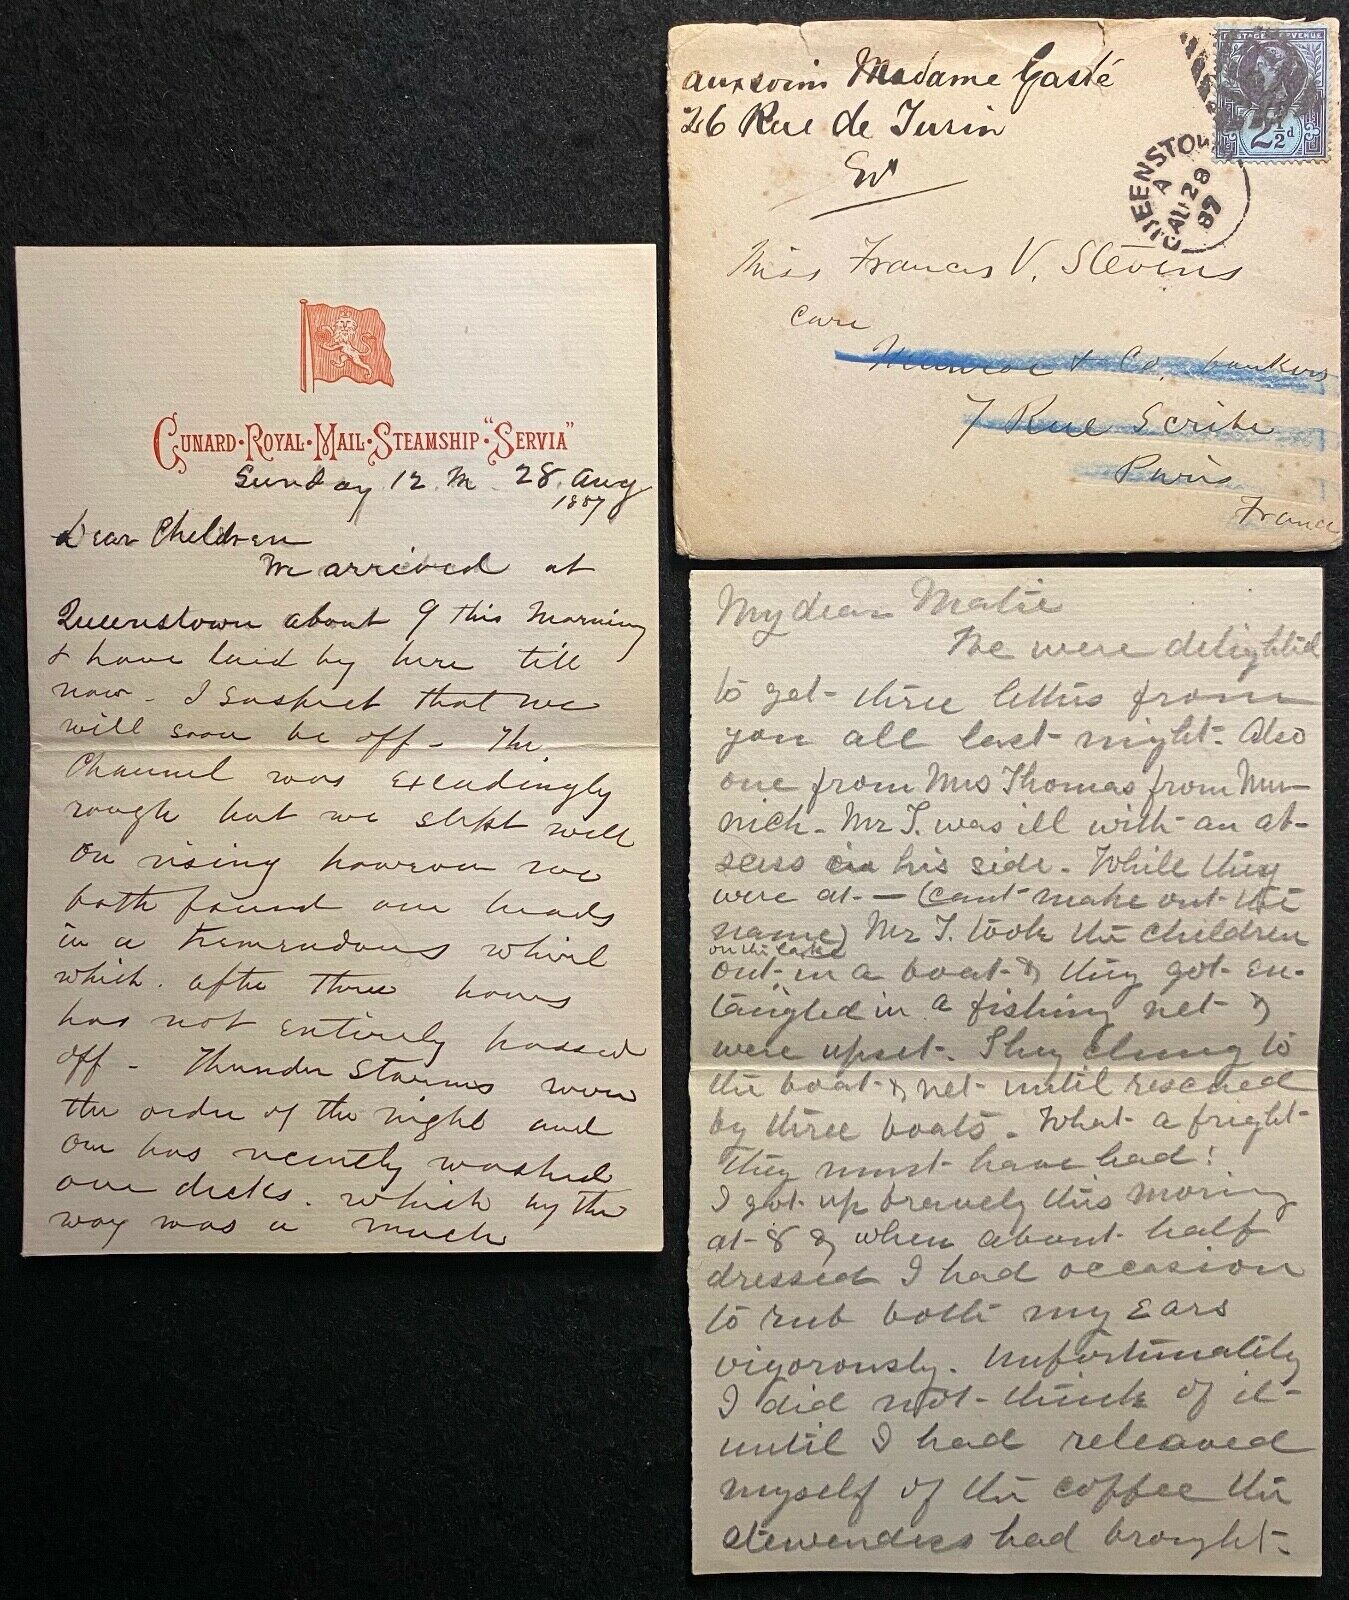 aux soins Madame Gasté
26 Rue de Turin
Miss Frances V. Stevens
Care
Munroe & Co. bankers
7 Rue Scribe
Paris
France
POSTAGE & REVENUE
2½d
QUEENSTOWN
A
AU 28
87
CUNARD·ROYAL·MAIL·STEAMSHIP·"SERVIA"
Sunday 12 M 28 Aug
1887
Dear Children
We arrived at
Queenstown about 9 this Morning
& have laid by here till
now - I suspect that we
will soon be off - The
Channel was exceedingly
rough but we slept well
On rising however we
both found our heads
in a tremendous whirl
which after three hours
has not entirely passed
off - Thunder Storms were
the order of the night and
one has recently washed
our decks. which by the
way was a much
My dear Matie
We were delighted
to get three letters from
you all last night. Also
one from Mrs Thomas from Mu-
nich. Mr T. was ill with an ab-
scess in his side. While they
were at - (cant make out the
name) Mr T. took the children
on the lake
out in a boat & they got en-
tangled in a fishing net &
were upset. They clung to
the boat & net until rescued
by three boats. What a fright
they must have had!
I got up bravely this moring
at 8 & when about half
dressed I had occasion
to rub both my ears
vigorously. Unfortunately
I did not think of it
until I had releaved
myself of the coffee the
stewardess had brought.